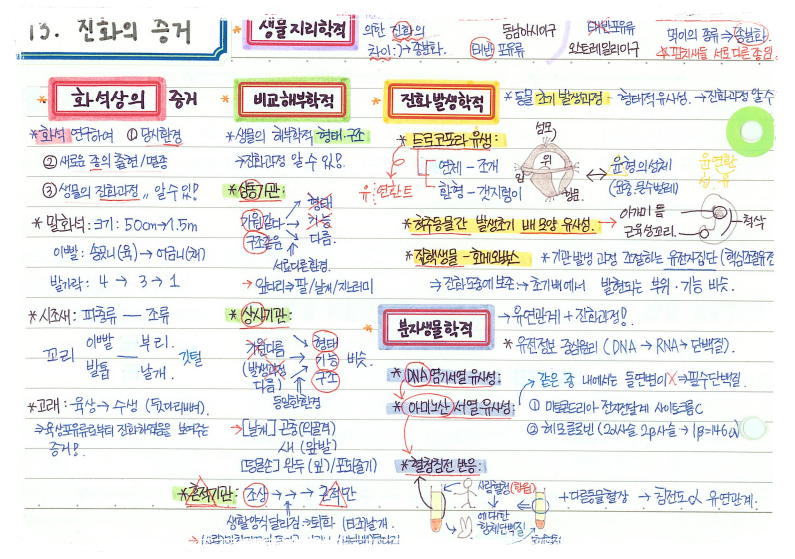 13. 진화의 증거
* 생물 지리학적
의한 진화의 차이 :) → 종분화.
동남아시아구 태반 포유류
태반포유류 오스트레일리아구
먹이의 종류 → 종분화.
* 핀치새들 서로 다른 종임
* 화석상의 증거
* 화석 연구하여 ① 당시환경
② 새로운 종의 출현/멸종
③ 생물의 진화과정 〃 알 수 있음!
* 말화석: 크기: 50cm → 1.5m
이빨: 송곳니(육) → 어금니(채)
발가락: 4 → 3 → 1
* 시조새: 파충류 — 조류
꼬리 이빨 발톱 — 부리. 날개. 깃털
* 고래: 육상 → 수생 (뒷다리뼈).
⇒ 육상포유류로부터 진화하였음을 보여주는 증거!
* 비교해부학적
* 생물의 해부학적 형태·구조
→ 진화과정 알 수 있음!
* 상동기관:
기원같다 구조같음 → 형태 기능 다름.
서로다른환경.
→ 앞다리 → 팔/날개/지느러미
* 상사기관:
기원다름 (발생과정 다름) → 형태 기능 구조 비슷.
동일한환경
→ [날개] 곤충(외골격)
새 (앞발)
[덩굴손] 완두(잎)/포도(줄기)
* 흔적기관: 조상 → → → 흔적만
생활양식달라짐 → 퇴화
* 진화발생학적
* 동물 초기 발생과정 - 형태적 유사성. → 진화과정 알수
* 트로코포라 유생:
연체 - 조개
환형 - 갯지렁이
유연관계
섬모 위 항문.
↔ 윤형의 성체
* 척추동물간 발생초기 배 모양 유사성. → 아가미 틈 근육성꼬리. 척삭
* 집행생물 - 호메오박스
* 기관 발생 과정 조절하는 유전자집단 (핵심조절유전
→ 진화 도중에 보존 → 초기배에서 발현되는 부위·기능 비슷.
* 분자생물학적
→ 유연관계 + 진화과정!
* 유전정보 중심원리 (DNA → RNA → 단백질).
* DNA 염기서열 유사성:
같은 종 내에서는 돌연변이 X ⇒ 필수단백질.
* 아미노산 서열 유사성:
① 미토콘드리아 전자전달계 사이토크롬C
② 헤모글로빈 (2α사슬 2β사슬 → 1β=146a)
* 혈청침전 반응:
사람혈청 (항원)
에 대한 항체단백질
+ 다른동물혈장 → 침전도 α 유연관계.